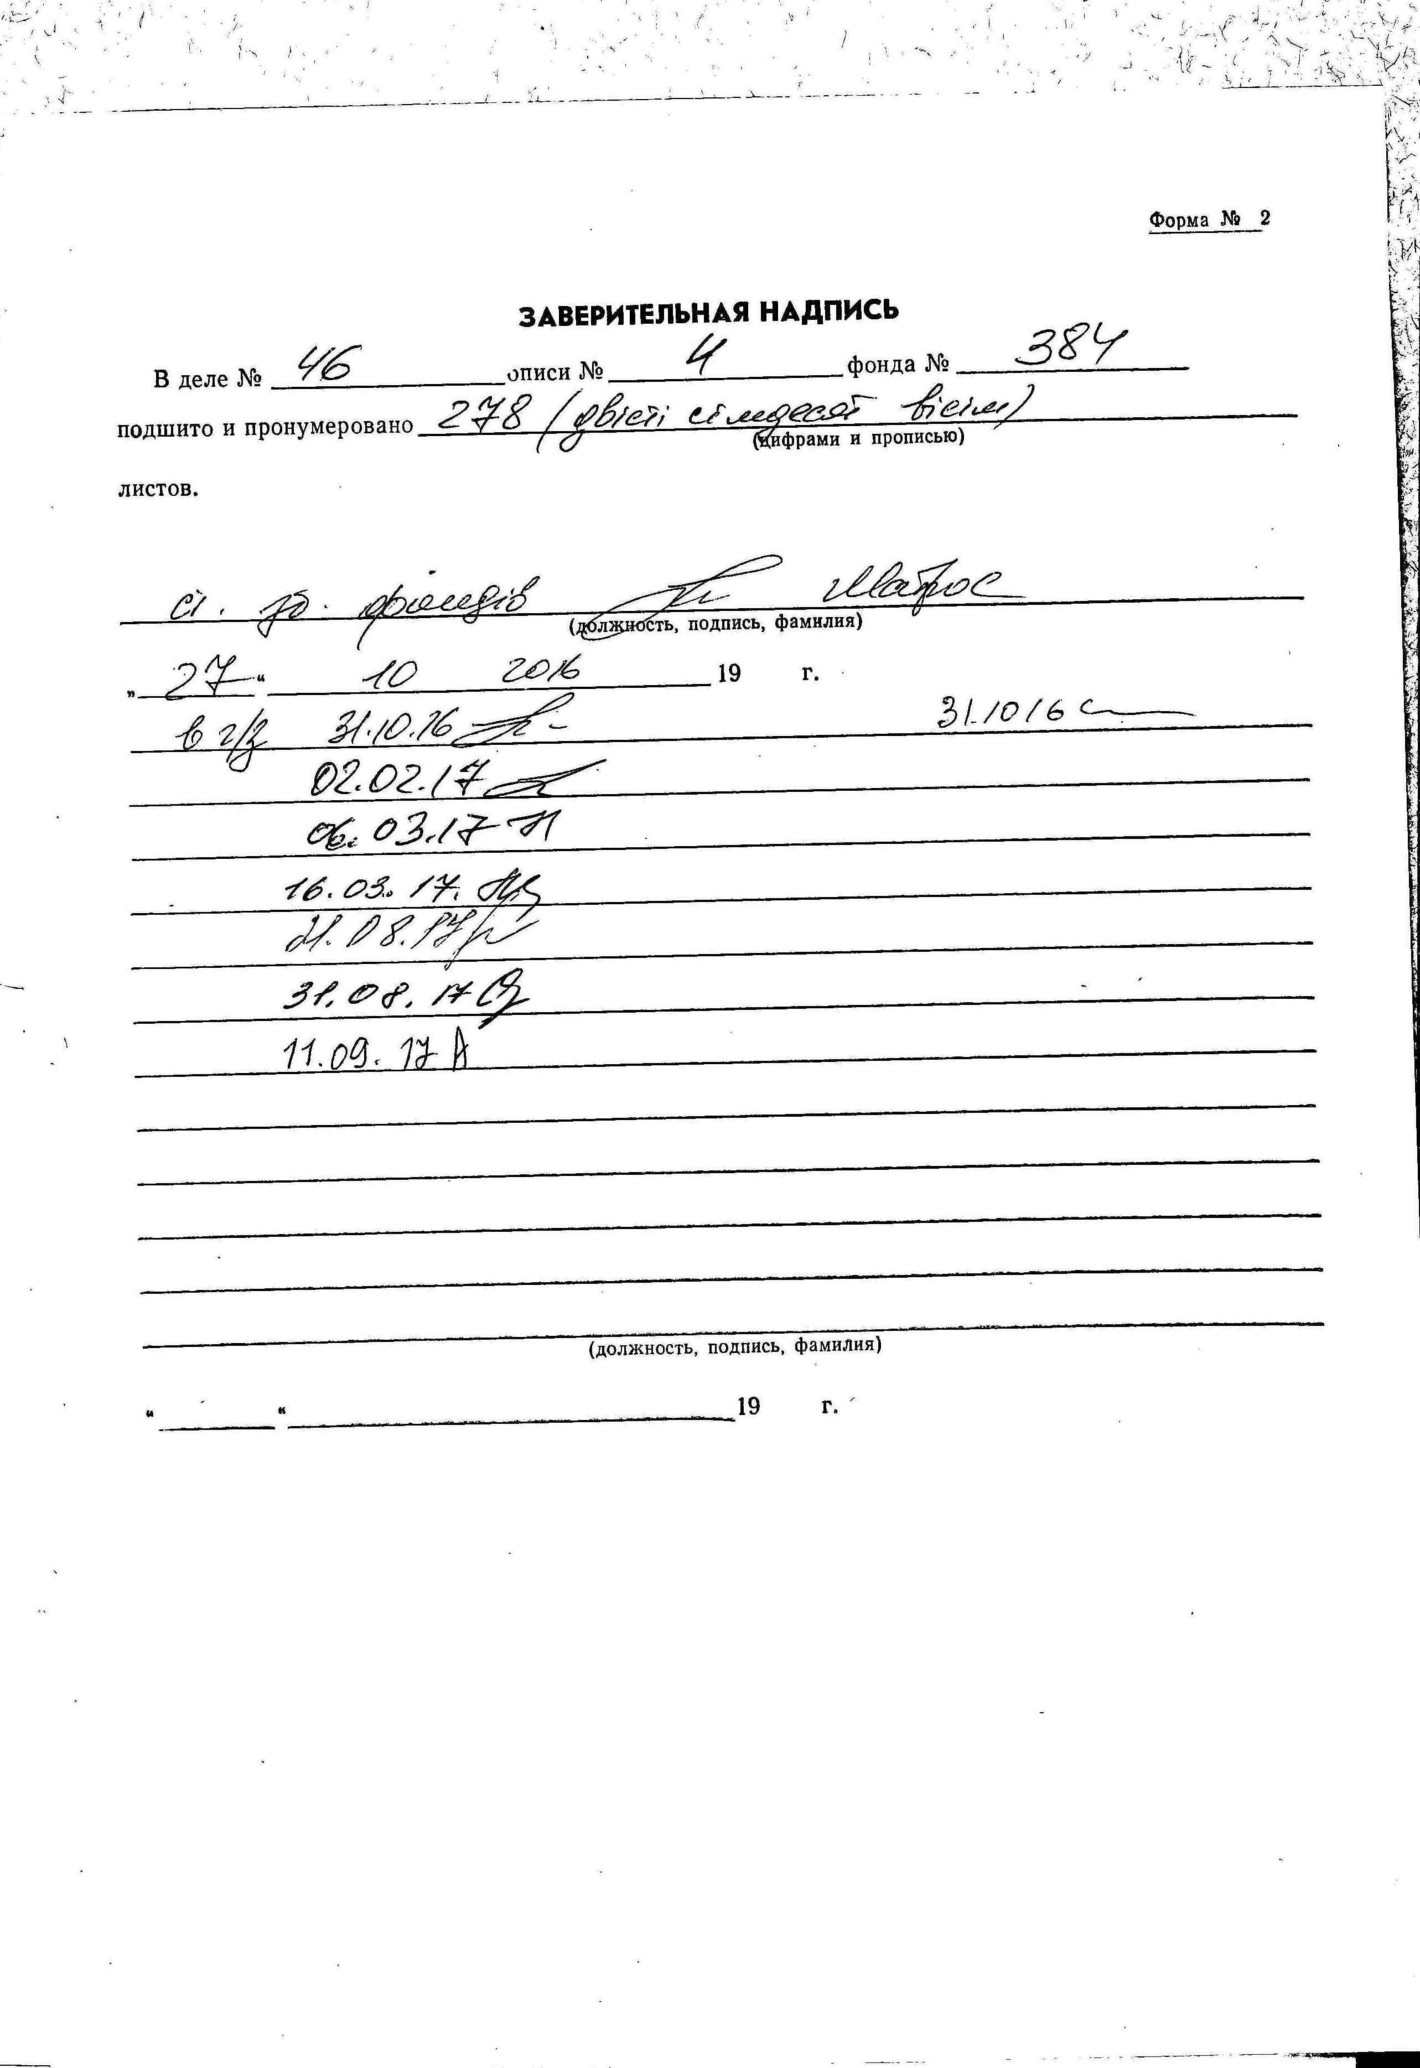 Форма № 2
ЗАВЕРИТЕЛЬНАЯ НАДПИСЬ
В деле № 46 описи № 4 фонда № 384
подшито и пронумеровано 278 (двісті сімдесят вісім)
(цифрами и прописью)
листов.
ст. зб. фондів Матрос
(должность, подпись, фамилия)
„ 27 “ 10 2016 19 г.
в ч/з 31.10.16 31.10 16
02.02.17
06.03.17
16.03.17.
21.08.17
31.08.17
11.09.17
(должность, подпись, фамилия)
“ “ 19 г.